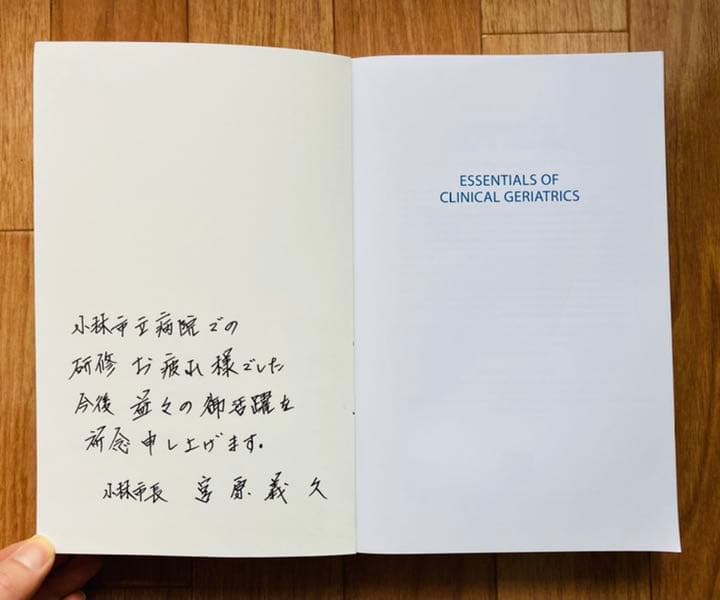 小林市立病院での
研修 お疲れ様でした
今後 益々の御活躍を
祈念申し上げます。
小林市長 宮原義久
ESSENTIALS OF
CLINICAL GERIATRICS